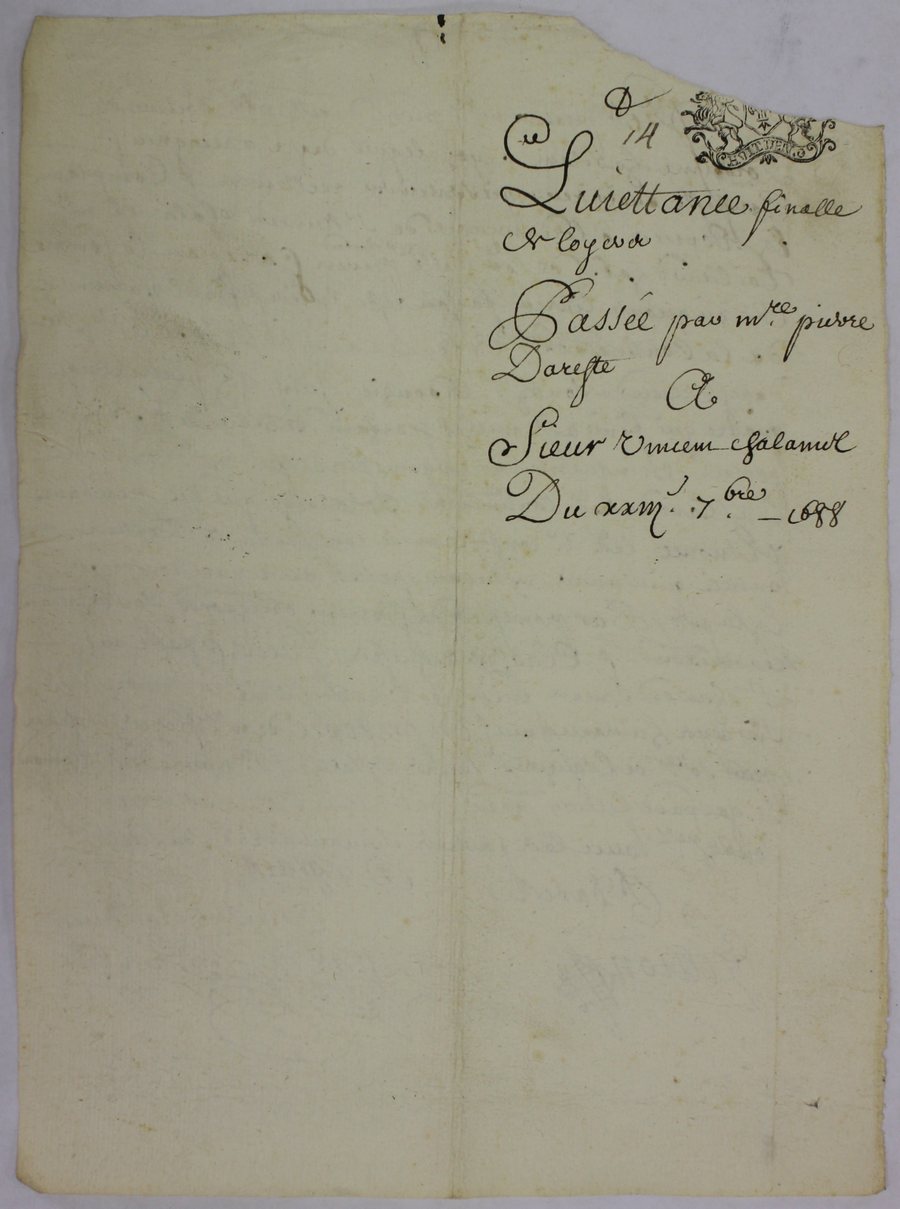 D
14
HUIT DEN.
Quiettance finalle
et loyer
Passée par mre pierre
Dareste
A
Sieur Vincent Chalamel
Du xxiij 7bre 1688